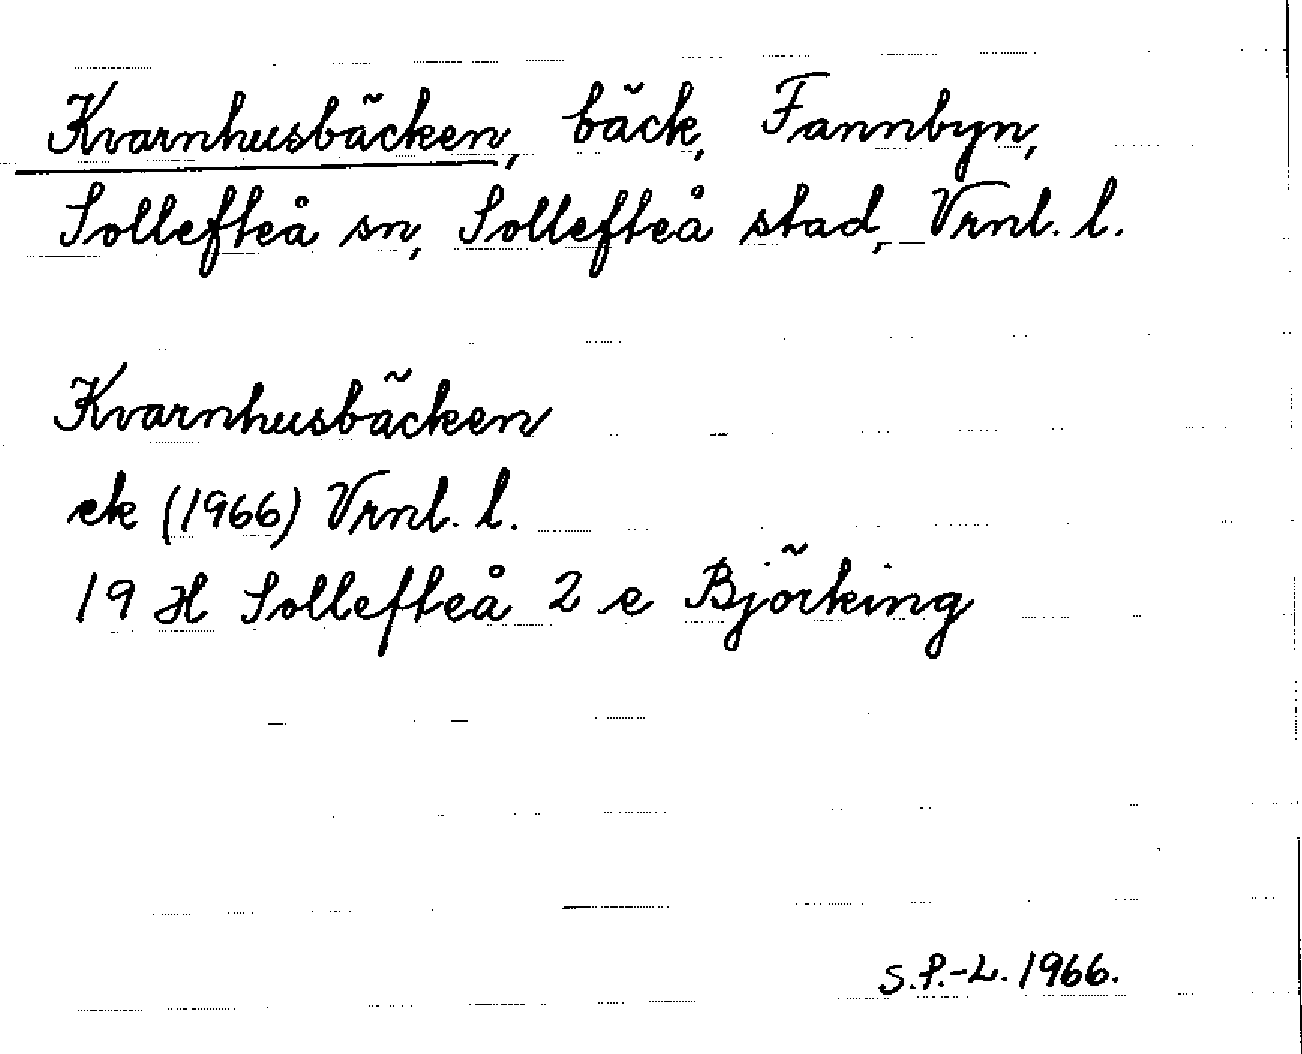 Kvarnhusbäcken, bäck, Fannbyn,
Sollefteå sn, Sollefteå stad, Vrnl. l.
Kvarnhusbäcken
ek (1966) Vrnl. l.
19 H Sollefteå 2 e Björking
S.P.-L. 1966.